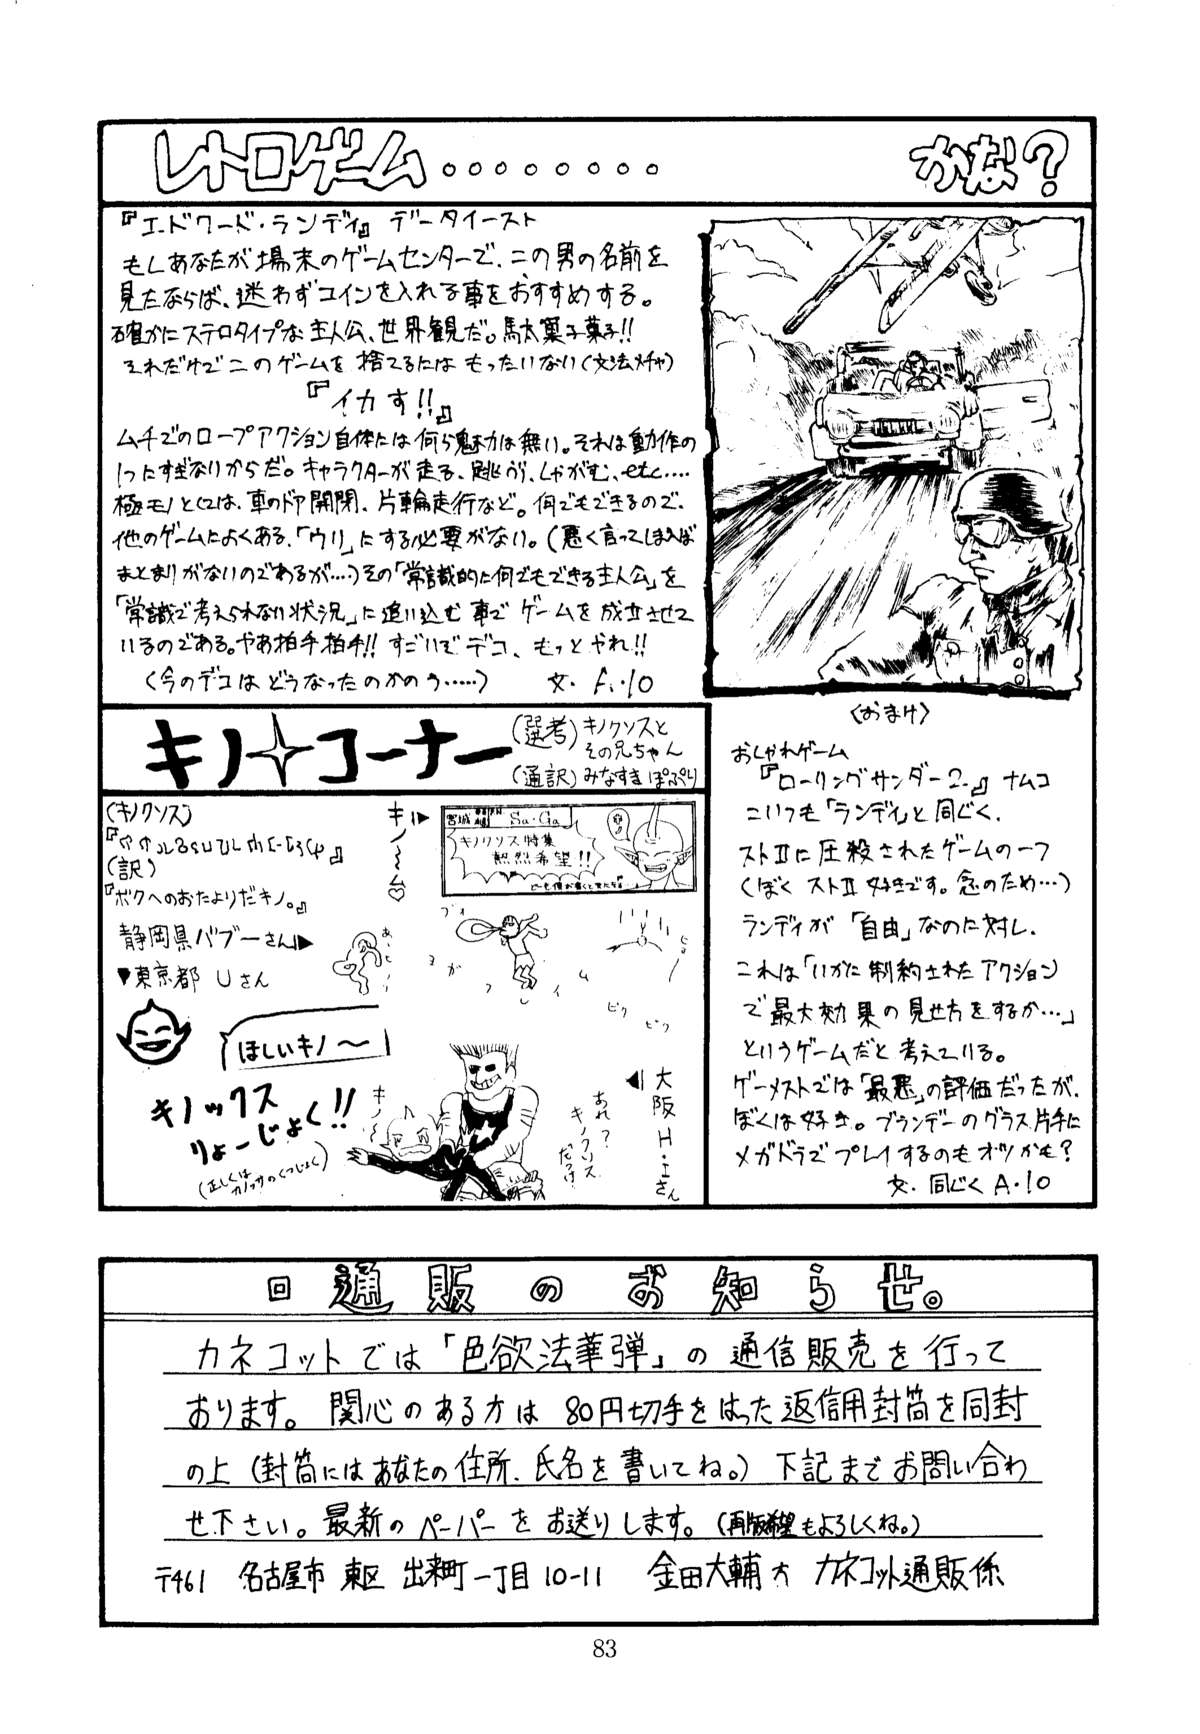 レトロゲーム........ かな？
『エドワード・ランディ』データイースト
もしあなたが場末のゲームセンターで、この男の名前を
見たならば、迷わずコインを入れる事をおすすめする。
確かにステロタイプな主人公、世界観だ。馬太菓子菓子!!
それだけでこのゲームを捨てるにはもったいない(文法メチャ)
『イカす!!』
ムチでのロープアクション自体には何ら魅力は無い。それは動作の
1つにすぎないからだ。キャラクターが走る、跳ぶ、しゃがむ、etc....
極モノとしては、車のドア開閉、片輪走行など。何でもできるので、
他のゲームによくある、「ウリ」にする必要がない。(悪く言ってしまえば
まとまりがないのであるが...)その「常識的に何でもできる主人公」を
「常識で考えられない状況」に追い込む事でゲームを成立させて
いるのである。やあ拍手拍手!! すごいぞデコ、もっとやれ!!
(今のデコはどうなったのかのう.....) 文・A・10
〈おまけ〉
おしゃれゲーム
『ローリングサンダー2』ナムコ
こいつも「ランディ」と同じく、
ストIIに圧殺されたゲームの一つ
(ぼくストII好きです。念のため...)
ランディが「自由」なのに対し、
これは「いかに制約されたアクション
で最大効果の見せ方をするか...」
というゲームだと考えている。
ゲーメストでは「最悪」の評価だったが、
ぼくは好き。ブランデーのグラス片手に
メガドラでプレイするのもオツかも?
文・同じくA・10
キノ コーナー
(選考)キノクソスと
その兄ちゃん
(通訳)みなすきぽぷり
(キノクソス)
(訳)
『ボクへのおたよりだキノ。』
静岡県バブーさん▶
▼東京都 Uさん
キノ〜ム♡
宮城 Sa・Ga
キノクソス特集
熱烈希望!!
ほしいキノ〜
キノックス
りょーじょく!!
(正しくはカノッサのくつじょく)
キノ〜
あれ?
キノクソス
だっけ
◀大阪H・Iさん
回 通販のお知らせ。
カネコットでは「色欲法華弾」の通信販売を行って
おります。関心のある方は80円切手をはった返信用封筒を同封
の上(封筒にはあなたの住所、氏名を書いてね。)下記までお問い合わ
せ下さい。最新のペーパーをお送りします。(再版希望もよろしくね。)
〒461 名古屋市東区出来町一丁目10-11 金田大輔方 カネコット通販係
83